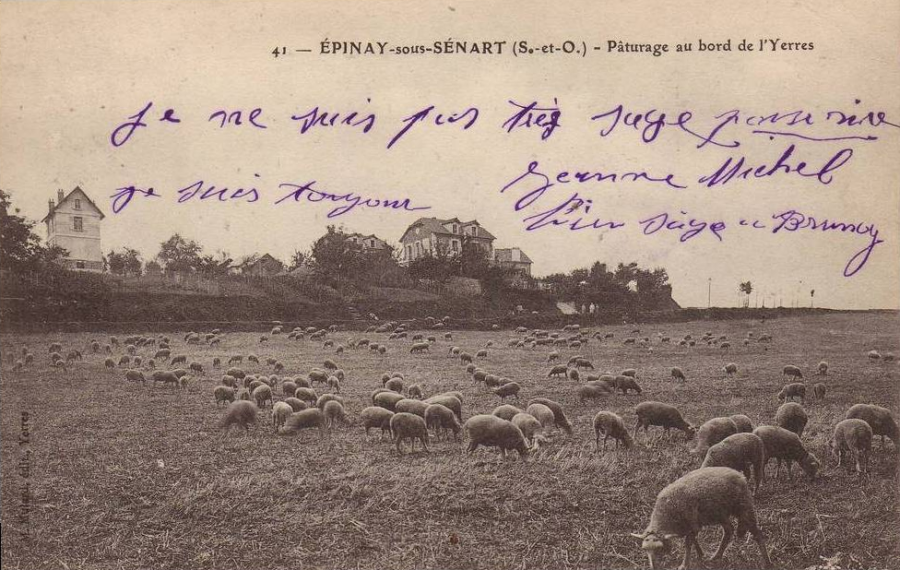 41 — ÉPINAY-sous-SÉNART (S.-et-O.) - Pâturage au bord de l'Yerres
Je ne suis pas très sage
Jeanne Michel
je suis toujour
bien sage a Brunoy
édit. Yerres